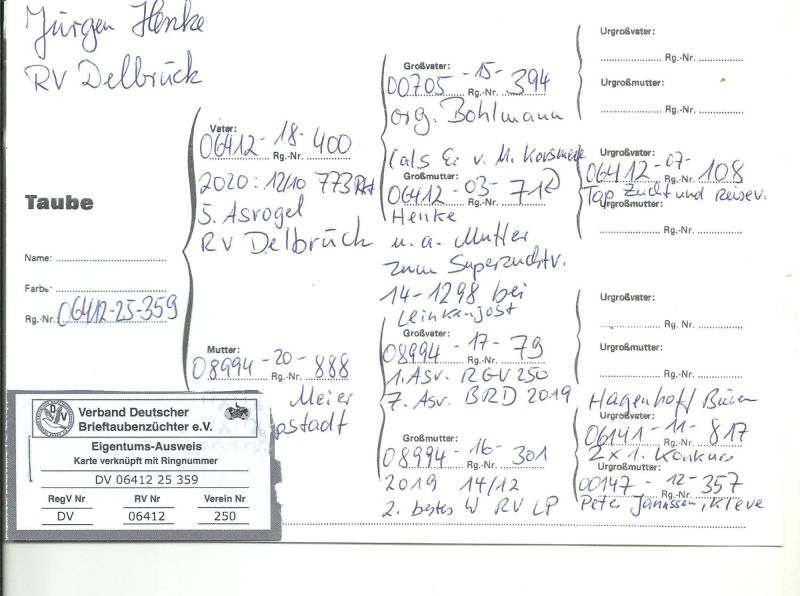 Jürgen Henke
RV Delbrück
Taube
Name:
Farbe:
Rg.-Nr.: 06412-25-359
Vater:
06412-18-400
Rg.-Nr.
2020: 12/10 773
5. Asvogel
RV Delbrück
Mutter:
08994-20-888
Rg.-Nr.
Meier
pstadt
Großvater:
00705-15-394
Rg.-Nr.
org. Bohlmann
(als Ei v. M. Korsmeie
Großmutter:
06412-03-712)
Rg.-Nr.
Henke
u. a. Mutter
zum Superzuchtv.
14-1298 bei
Leinkenjost
Großvater:
08994-17-79
Rg.-Nr.
1. Asv. RGV 250
7. Asv. BRD 2019
Großmutter:
08994-16-301
Rg.-Nr.
2019 14/12
2. bestes W RV LP
Urgroßvater:
Rg.-Nr.
Urgroßmutter:
Rg.-Nr.
Urgroßvater:
06412-07-108
Rg.-Nr.
Top Zucht und Reisev.
Urgroßmutter:
Rg.-Nr.
Urgroßvater:
Rg. Nr.
Urgroßmutter:
Rg.-Nr.
Hagenhoff Büren
Urgroßvater:
06141-11-817
Rg.-Nr.
2x1. Konkurs
Urgroßmutter:
00147-12-357
Rg.-Nr.
Peter Janussen, Kleve
Verband Deutscher
Brieftaubenzüchter e.V.
Eigentums-Ausweis
Karte verknüpft mit Ringnummer
DV 06412 25 359
RegV Nr RV Nr Verein Nr
DV 06412 250